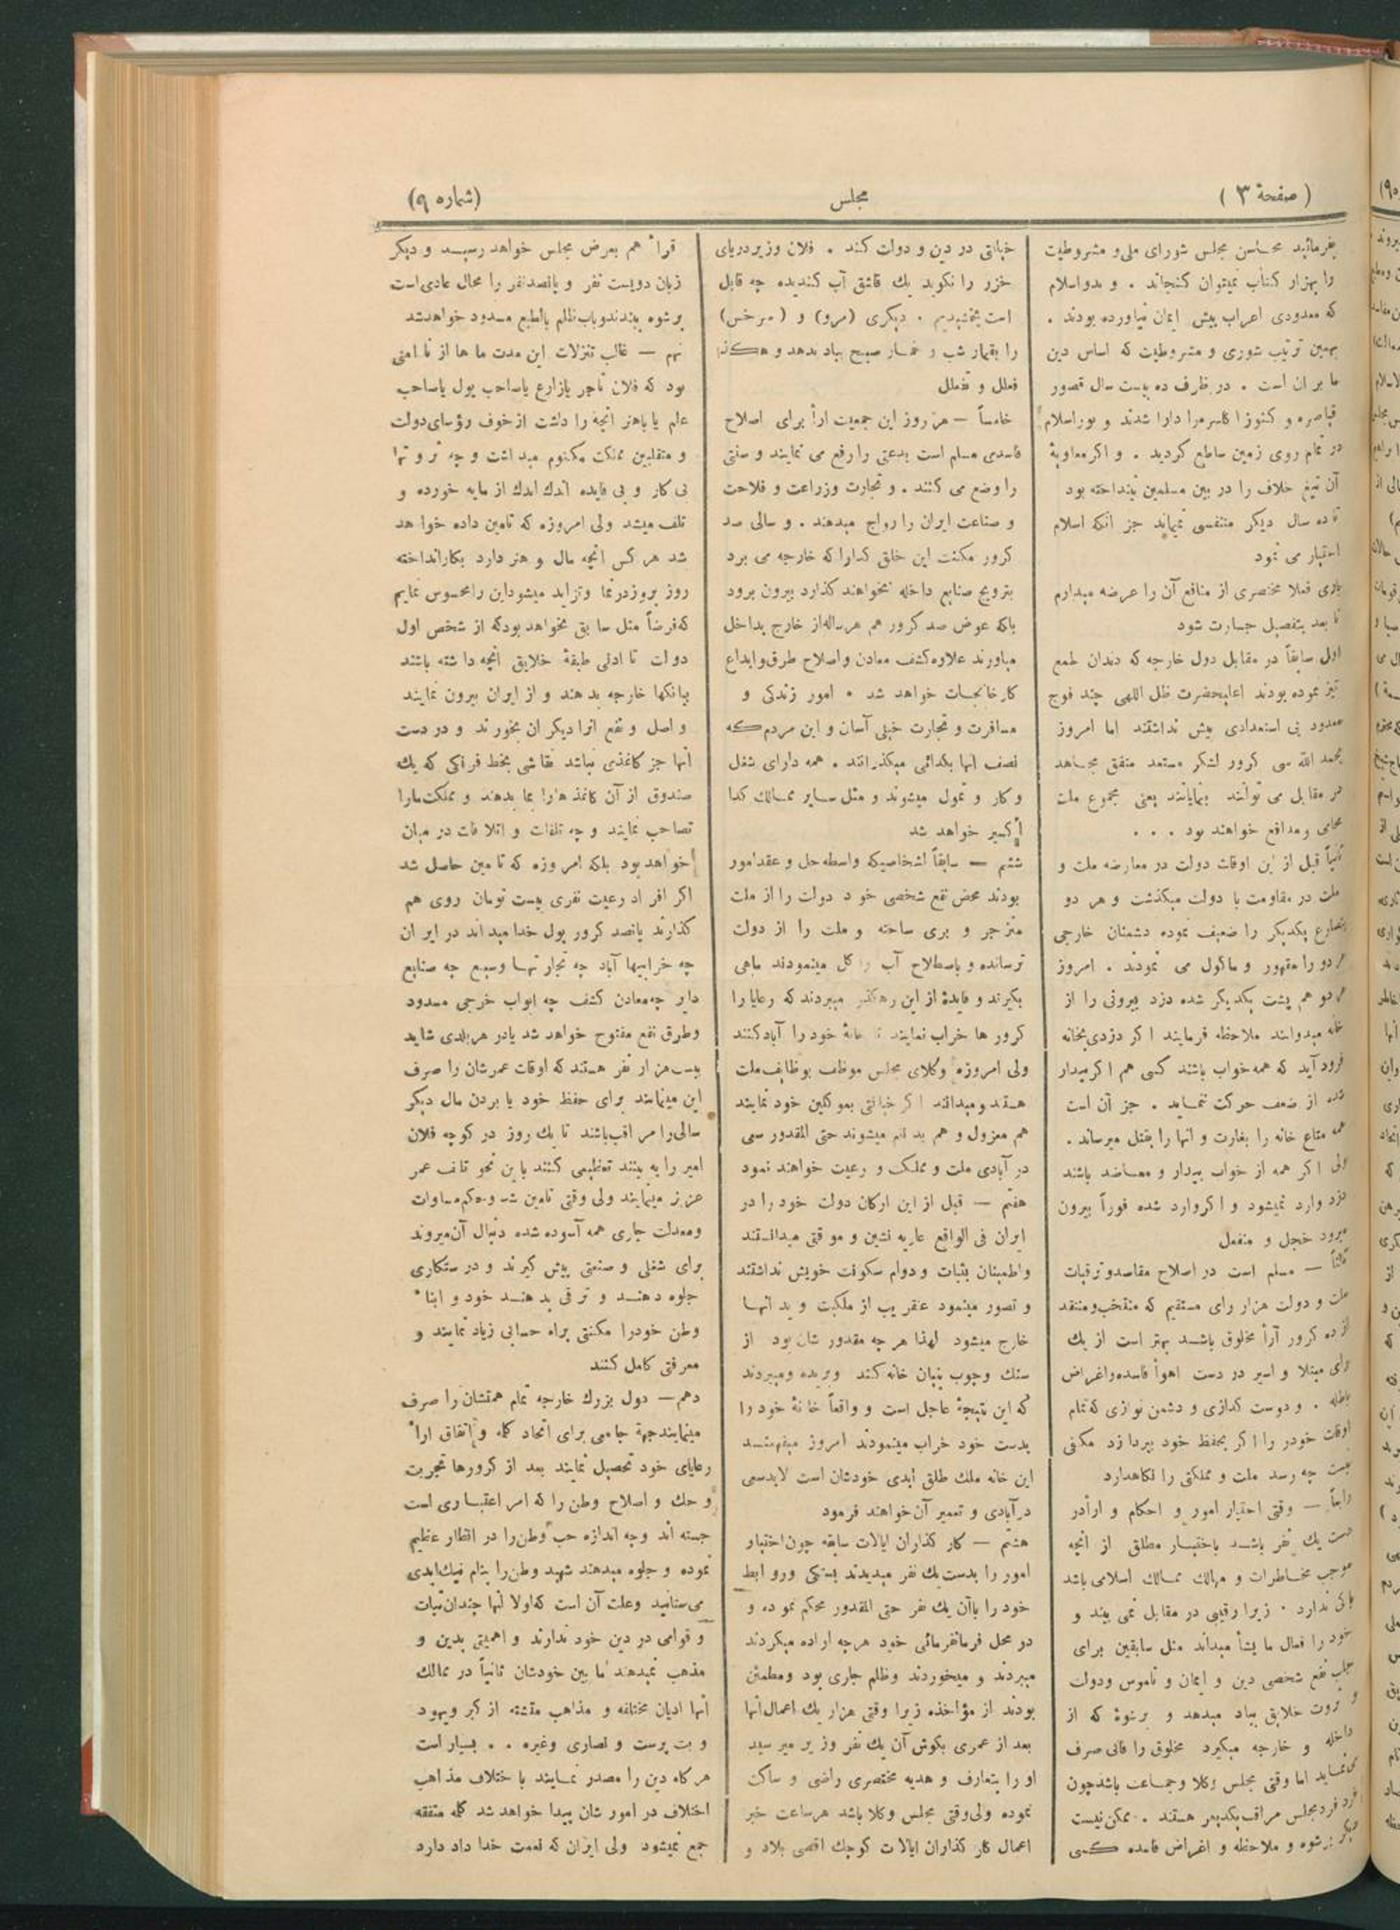 (صفحهٔ ۳)
مجلس
(شماره ۹)
بفرمائید محاسن مجلس شورای ملی و مشروطیت
را بهزار کتاب نمیتوان کنجاند . و بدو اسلام
که معدودی اعراب بیش ایمان نیاورده بودند .
بهمین ترتیب شوری و مشروطیت که اساس دین
ما بر ان است . در ظرف ده بیست سال قصور
قیاصره و کنوز اکاسره را دارا شدند و نور اسلام
در تمام روی زمین ساطع کردید . و اکر معاویهٔ
آن تیغ خلاف را در بین مسلمین نینداخته بود
تا ده سال دیکر متنفسی نمیماند جز انکه اسلام
اختیار می نمود
باری فعلا مختصری از منافع آن را عرضه میدارم
تا بعد بتفصیل جسارت شود
اول سابقاً در مقابل دول خارجه که دندان طمع
تیز نموده بودند اعلیحضرت ظل اللهی چند فوج
معدود بی استعدادی بیش نداشتند اما امروز
بحمد الله سی کرور لشکر مستعد متفق مجاهد
در مقابل می توانند بنمایانند یعنی مجموع ملت
محامی و مدافع خواهند بود . . .
ثانیاً قبل از این اوقات دولت در معارضه ملت و
ملت در مقاومت با دولت میکذشت و هر دو
یکدیکر را ضعیف نموده دشمنان خارجی
هر دو را مقهور و ماکول می نمودند . امروز
هر دو هم پشت یکدیکر شده دزد بیرونی را از
خانه میدوانند ملاحظه فرمایند اکر دزدی بخانه
فرود آید که همه خواب باشند کسی هم اکر بیدار
شده از ضعف حرکت ننماید . جز آن است
همه متاع خانه را بغارت و انها را بقتل میرساند .
ولی اکر همه از خواب بیدار و معاضد باشند
دزد وارد نمیشود و اکر وارد شده فوراً بیرون
میرود خجل و منفعل
ثالثاً — مسلم است در اصلاح مفاسد و ترقیات
ملت و دولت هزار رای مستقیم که منتخب و منتقد
از ده کرور آرأ مخلوق باشد بهتر است از یك
رای مبتلا و اسیر در دست اهوأ فاسده و اغراض
باطله . و دوست کدازی و دشمن نوازی که تمام
اوقات خودر را اکر بحفظ خود بپردازد مکفی
نیست چه رسد ملت و مملکتی را نکاهدارد
رابعاً — وقتی اختیار امور و احکام و ارأ در
دست یك نفر باشد باختیار مطلق از انچه
موجب مخاطرات و مهالك ممالك اسلامی باشد
باکی ندارد . زیرا رقیبی در مقابل نمی بیند و
خود را فعال ما یشأ میداند مثل سابقین برای
جلب نفع شخصی دین و ایمان و ناموس و دولت
و ثروت خلایق بباد میدهد و برشوهٔ که از
داخله و خارجه میکیرد مخلوق را فانی صرف
می نماید اما وقتی مجلس وکلا و جماعت باشد چون
فرد فرد مجلس مراقب یکدیکر هستند . ممکن نیست
دیکر برشوه و ملاحظه و اغراض فاسده کسی
خیانتی در دین و دولت کند . فلان وزیر دریای
خزر را نکوید یك قاشق آب کندیده چه قابل
است بخشیدیم . دیکری (مرو) و (سرخس)
را بقمار شب و خمار صبح بباد بدهد و هکذا
فعلل و تفعلل
خامساً — هر روز این جمعیت ارأ برای اصلاح
فاسدی مسلم است بدعتی را رفع می نمایند و سنتی
را وضع می کنند . و تجارت و زراعت و فلاحت
و صناعت ایران را رواج میدهند . و سالی صد
کرور مکنت این خلق کدا را که خارجه می برد
بترویج صنایع داخله نمیخواهند کذارد بیرون برود
بلکه عوض صد کرور هم هرساله از خارج بداخل
میاورند علاوه کشف معادن و اصلاح طرق و ابداع
کارخانجات خواهد شد . امور زندکی و
مسافرت و تجارت خیلی آسان و این مردم که
نصف انها بکدائی میکذرانند . همه دارای شغل
و کار و تمول میشوند و مثل سایر ممالك کدا
اکسیر خواهد شد
ششم — سابقاً اشخاصیکه واسطه حل و عقد امور
بودند محض نفع شخصی خود دولت را از ملت
منزجر و بری ساخته و ملت را از دولت
ترسانده و باصطلاح آب را کل مینمودند ماهی
بکیرند و فایدهٔ از این رهکذر میبردند که رعایا را
کرور ها خراب نمایند تا خانهٔ خود را آباد کنند
ولی امروزه وکلای مجلس موظف بوظایف ملت
هستند و میدانند اکر خیانتی بموکلین خود نمایند
هم معزول و هم بدنام میشوند حتی المقدور سعی
در آبادی ملت و مملکت و رعیت خواهند نمود
هفتم — قبل از این ارکان دولت خود را در
ایران فی الواقع عاریه نشین و موقتی میدانستند
و اطمینان بثبات و دوام سکونت خویش نداشتند
و تصور مینمود عنقریب از ملکیت و ید انها
خارج میشود لهذا هر چه مقدور شان بود از
سنك و چوب بنیان خانه کند و بریده و میبردند
که این نتیجهٔ عاجل است و واقعاً خانهٔ خود را
بدست خود خراب مینمودند امروز میفهمند
این خانه ملك طلق ابدی خودشان است لابد سعی
در آبادی و تعمیر آن خواهند فرمود
هشتم — کار کذاران ایالات سابقه چون اختیار
امور را بدست یك نفر میدیدند بستکی و روابط
خود را باآن یك نفر حتی المقدور محکم نموده و
در محل فرمانفرمائی خود هرچه اراده میکردند
میبردند و میخوردند وظلم جاری بود و مطمئن
بودند از مؤاخذه زیرا وقتی هزار یك اعمال انها
بعد از عمری بکوش آن یك نفر وزیر میرسید
او را بتعارف و هدیه مختصری راضی و ساکت
نموده ولی وقتی مجلس وکلا باشد هر ساعت خبر
اعمال کار کذاران ایالات کوچك اقصی بلاد و
قرأ هم بعرض مجلس خواهد رسید و دیکر
زبان دویست نفر و پانصد نفر را محال عادی است
برشوه ببندند و باب ظلم بالطبع مسدود خواهد شد
نهم — غالب تنزلات این مدت ما ها از نا امنی
بود که فلان تاجر یا زارع یا صاحب پول یا صاحب
علم یا باهنر انچه را داشت از خوف رؤسای دولت
و متقلبین مملکت مکتوم میداشت و چه ثروتها
بی کار و بی فایده اندك اندك از مایه خورده و
تلف میشد ولی امروزه که تامین داده خواهد
شد هر کس انچه مال و هنر دارد بکار انداخته
روز بروز در نما و تزاید میشود این را محسوس نمایم
که فرضاً مثل سابق نخواهد بود که از شخص اول
دولت تا ادنی طبقهٔ خلایق انچه داشته باشند
ببانکها خارجه بدهند و از ایران بیرون نمایند
و اصل و نفع انرا دیکران بخورند و در دست
آنها جز کاغذی نباشد نقاشی بخط فرانکی که یك
صندوق از آن کاغذ هارا بما بدهند و مملکت مارا
تصاحب نمایند و چه تلفات و اتلافات در میان
خواهد بود بلکه امروزه که تامین حاصل شد
اکر افراد رعیت نفری بیست تومان روی هم
کذارند پانصد کرور پول خدا میداند در ایران
چه خرابیها آباد چه تجارتها وسیع چه صنایع
دایر چه معادن کشف چه ابواب خرجی مسدود
وطرق نفع مفتوح خواهد شد یا در هر بلدی شاید
بیست هزار نفر هستند که اوقات عمرشان را صرف
این مینمایند برای حفظ خود یا بردن مال دیکر
سالی را مراقب باشند تا یك روز در کوچه فلان
امیر را به بینند تعظیمی کنند باین نحو تلف عمر
عزیز مینمایند ولی وقتی تامین شد و حکم مساوات
ومعدلت جاری همه آسوده شده دنبال آن میروند
برای شغلی و صنعتی پیش کیرند و درستکاری
جلوه دهند و ترقی بدهند خود و ابناء
وطن خودرا مکنتی براه حسابی زیاد نمایند و
معرفتی کامل کنند
دهم — دول بزرك خارجه تمام همتشان را صرف
مینمایند جههٔ جامعی برای اتحاد کلمه و اتفاق ارأ
رعایای خود تحصیل نمایند بعد از کرورها تجربت
و حك و اصلاح وطن را که امر اعتباری است
جسته اند وچه اندازه حب وطن را در انظار عظیم
نموده و جلوه میدهند شهید وطن را بنام نیك ابدی
می ستانید وعلت آن است که اولا آنها چندان ثبات
و قوامی در دین خود ندارند و اهمیتی بدین و
مذهب نمیدهند ما بین خودشان ثانیاً در ممالك
آنها ادیان مختلفه و مذاهب متشتته از کبر ویهود
و بت پرست و نصاری وغیره . . بسیار است
هرکاه دین را مصدر نمایند با ختلاف مذاهب
اختلاف در امور شان پیدا خواهد شد کله متفقه
جمع نمیشود ولی ایران که نعمت خدا داد دارد